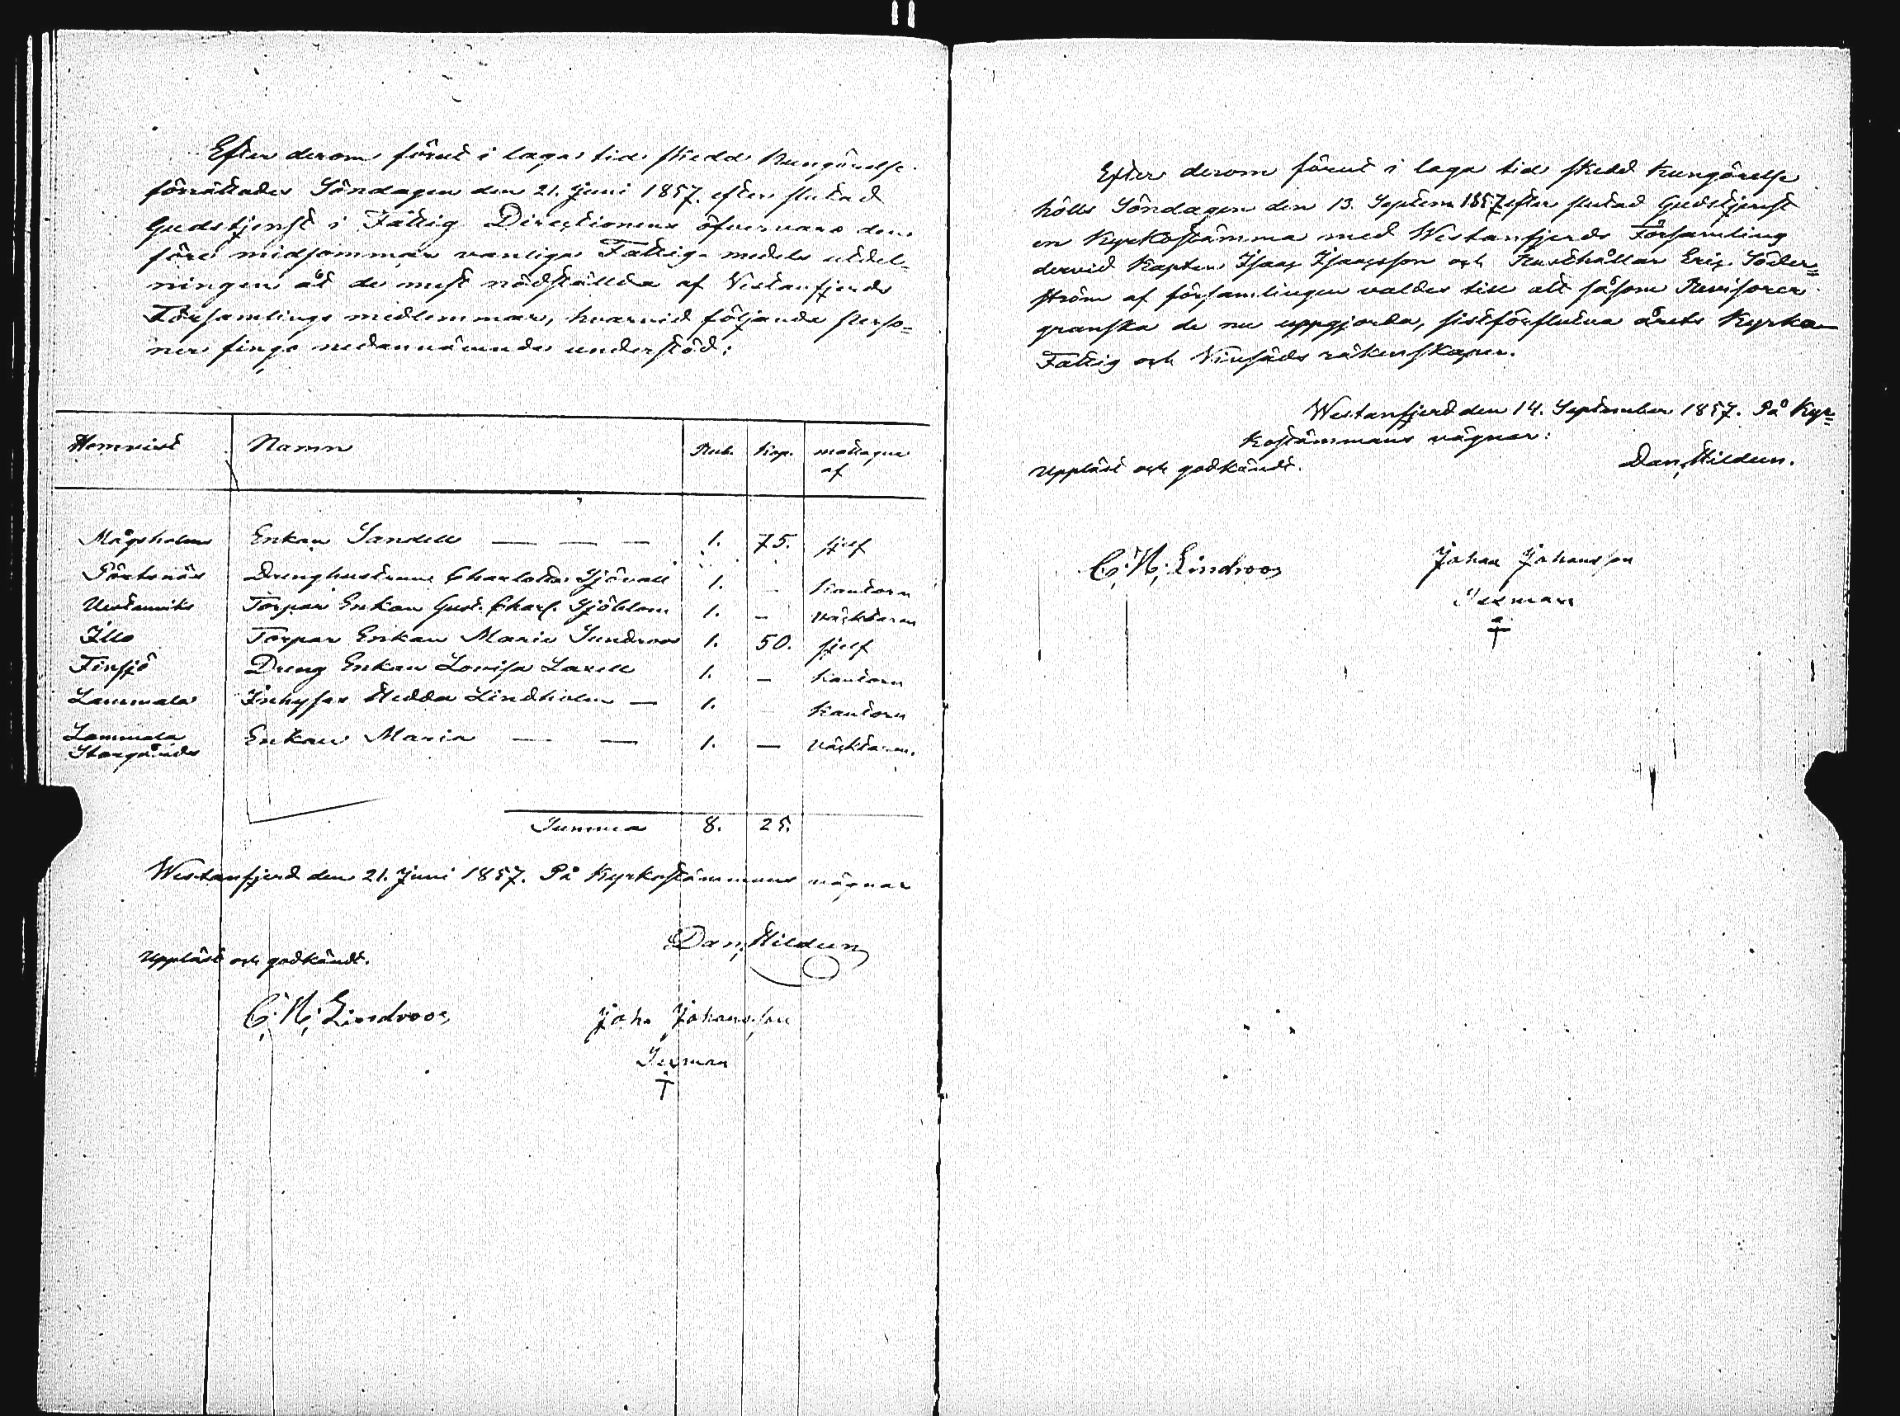 Efter derom förut i laga tid skedd kungörelse
förrättades Söndagen den 21. Juni 1857. efter slutad
Gudstjenst i Fattig Direktionens öfvervaro den
före midsommar vanliga Fattig-medels utdel=
ningen åt de mest nödställda af Vestanfjerds
Församlings medlemmar, hvarvid följande perso=
ner fingo nedannämnde understöd:
Hemvist Namn Rub. Kop. mottagne af
Mågsholm Enkan Sandell — — — 1. 75. sjelf
Pörtsnäs Drenghustrun Charlotta Sjövall 1. - kantorn
Torpar Enkan Gust. Charl. Sjöblom 1. - väcktaren
Illo Torpar Enkan Maria Sundroos 1. 50. sjelf
Finsjö Dreng Enkan Lovisa Laxell 1. — kantorn
Lammala Inhyses Hedda Lindholm — 1. kantorn
Lammala Storgårds Enkan Maria — — 1. — väcktaren.
Summa 8. 25.
Westanfjerd den 21. Juni 1857. På Kyrkostämmans vägnar
Dan. Hildeen
Uppläst och godkändt.
C. N. Lindroos Joha Johansson
Sexman
Efter derom förut i laga tid skedd kungörelse
hölls Söndagen den 13. Septem 1857 efter slutad Gudstjenst
en Kyrkostämma med Westanfjerds Församling
dervid Kapten Isaac Isacsson och Rusthållar Eric Söder=
ström af församlingen valdes till att såsom Revisorer
granska de nu uppgjorda, sistförflutna årets Kyrko
Fattig och Vinsäds räkenskaper.
Westanfjerd den 14. September 1857. På Kyr=
kostämmans vägnar:
Uppläst och godkändt. Dan. Hildeen.
C. N. Lindroos Johan Johansson
Sexman